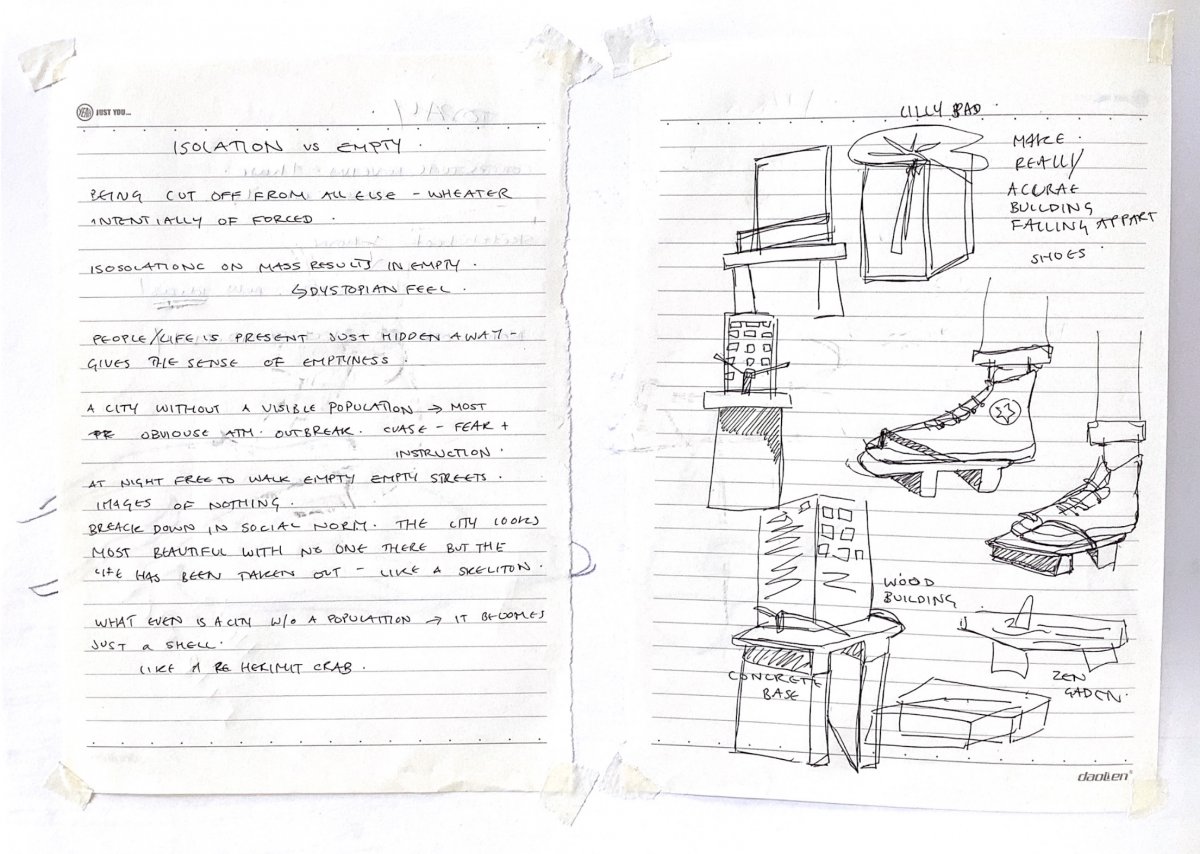 YEAH JUST YOU...
ISOLATION VS EMPTY.
BEING CUT OFF FROM ALL ELSE - WHEATER
INTENTIALLY OF FORCED.
ISOSOLATIONC ON MASS RESULTS IN EMPTY.
↳ DYSTOPIAN FEEL.
PEOPLE/LIFE IS PRESENT JUST HIDDEN AWAY -
GIVES THE SENSE OF EMPTYNESS.
A CITY WITHOUT A VISIBLE POPULATION → MOST
OBVIOUSE ATM. OUTBREAK. CUASE - FEAR +
INSTRUCTION
AT NIGHT FREE TO WALK EMPTY EMPTY STREETS.
IMAGES OF NOTHING.
BREACK DOWN IN SOCIAL NORM. THE CITY LOOKS
MOST BEAUTIFUL WITH NO ONE THERE BUT THE
LIFE HAS BEEN TAKEN OUT - LIKE A SKELITON.
WHAT EVEN IS A CITY W/O A POPULATION → IT BECOMES
JUST A SHELL.
LIKE A RE HERIMIT CRAB.
LILLY PAD.
MAKE.
REALLY
ACCURAE
BUILDING
FALLING APPART
SHOES.
WOOD
BUILDING
CONCRETE
BASE
ZEN
GADEN.
daolien